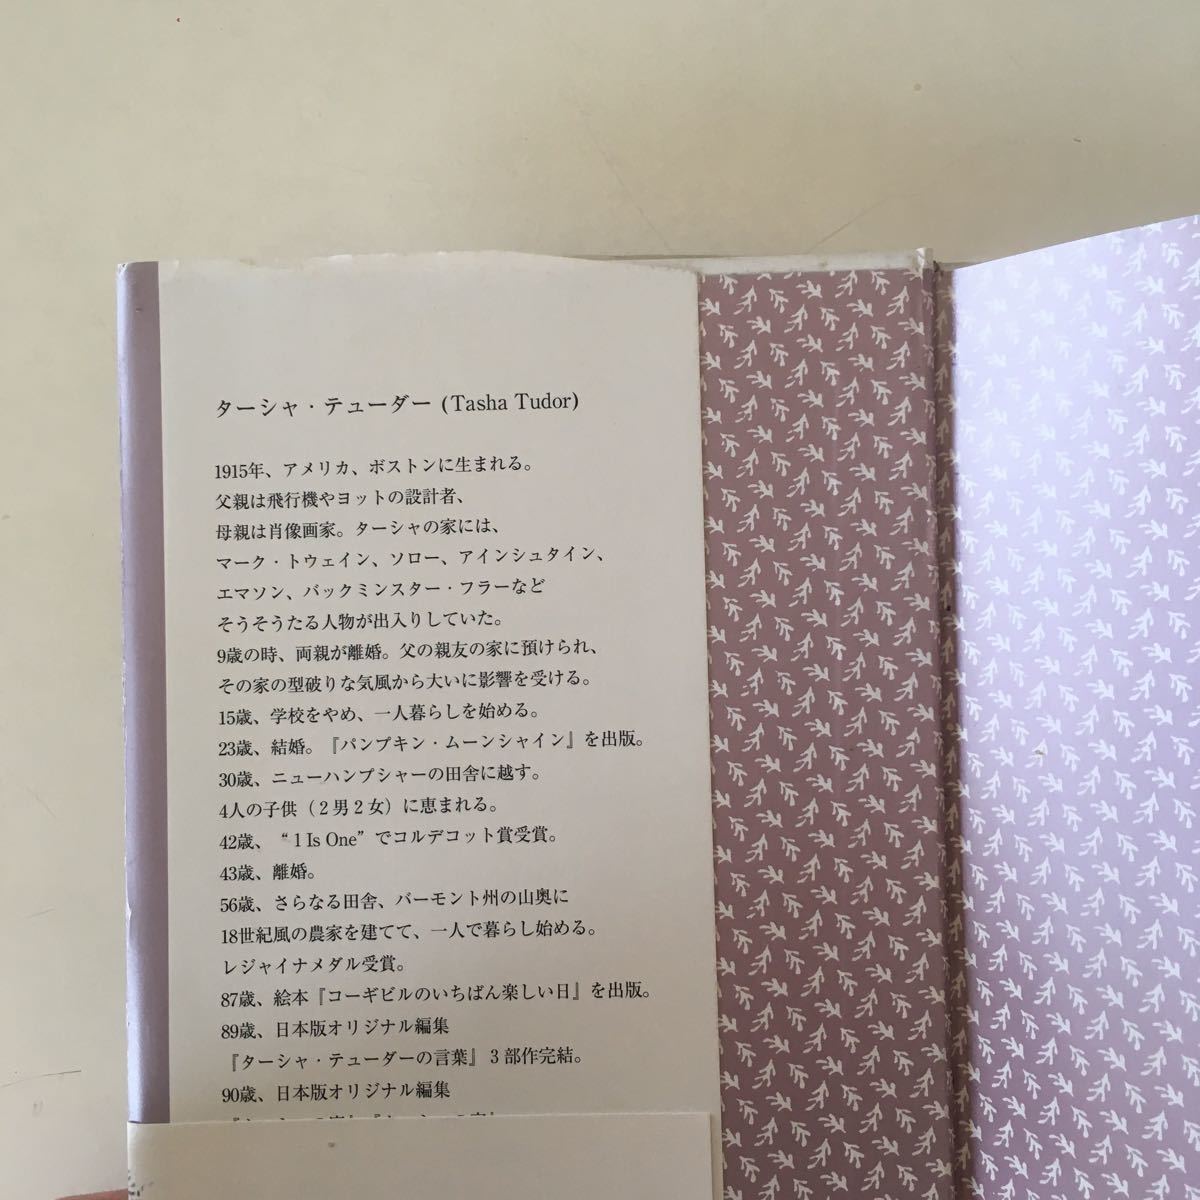 ターシャ・テューダー (Tasha Tudor)
1915年、アメリカ、ボストンに生まれる。
父親は飛行機やヨットの設計者、
母親は肖像画家。ターシャの家には、
マーク・トウェイン、ソロー、アインシュタイン、
エマソン、バックミンスター・フラーなど
そうそうたる人物が出入りしていた。
9歳の時、両親が離婚。父の親友の家に預けられ、
その家の型破りな気風から大いに影響を受ける。
15歳、学校をやめ、一人暮らしを始める。
23歳、結婚。『パンプキン・ムーンシャイン』を出版。
30歳、ニューハンプシャーの田舎に越す。
4人の子供（2男2女）に恵まれる。
42歳、“1 Is One”でコルデコット賞受賞。
43歳、離婚。
56歳、さらなる田舎、バーモント州の山奥に
18世紀風の農家を建てて、一人で暮らし始める。
レジャイナメダル受賞。
87歳、絵本『コーギビルのいちばん楽しい日』を出版。
89歳、日本版オリジナル編集
『ターシャ・テューダーの言葉』3部作完結。
90歳、日本版オリジナル編集